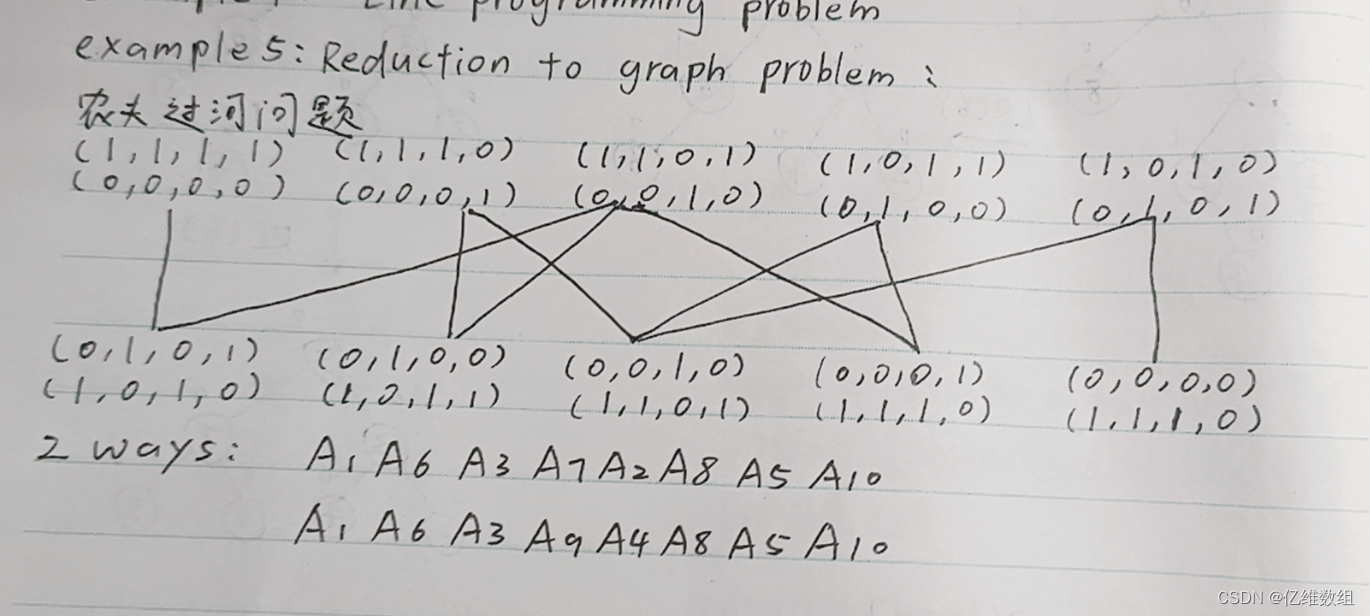 programming problem
example 5: Reduction to graph problem:
农夫过河问题
(1,1,1,1) (1,1,1,0) (1,1,0,1) (1,0,1,1) (1,0,1,0)
(0,0,0,0) (0,0,0,1) (0,0,1,0) (0,1,0,0) (0,1,0,1)
(0,1,0,1) (0,1,0,0) (0,0,1,0) (0,0,0,1) (0,0,0,0)
(1,0,1,0) (1,0,1,1) (1,1,0,1) (1,1,1,0) (1,1,1,0)
2 ways: A1 A6 A3 A7 A2 A8 A5 A10
A1 A6 A3 A9 A4 A8 A5 A10
CSDN @亿维数组